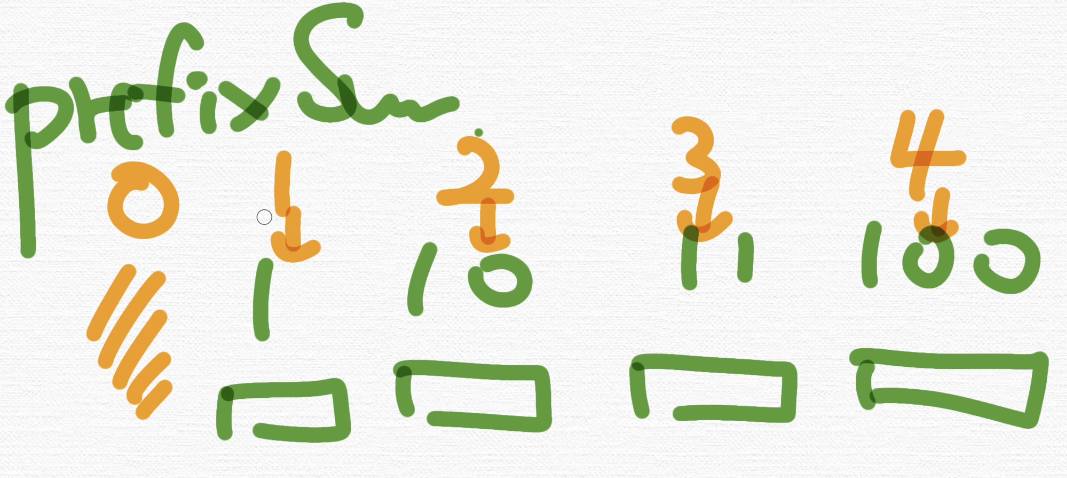 prefix Sum
0 1 2 3 4
1 10 11 100